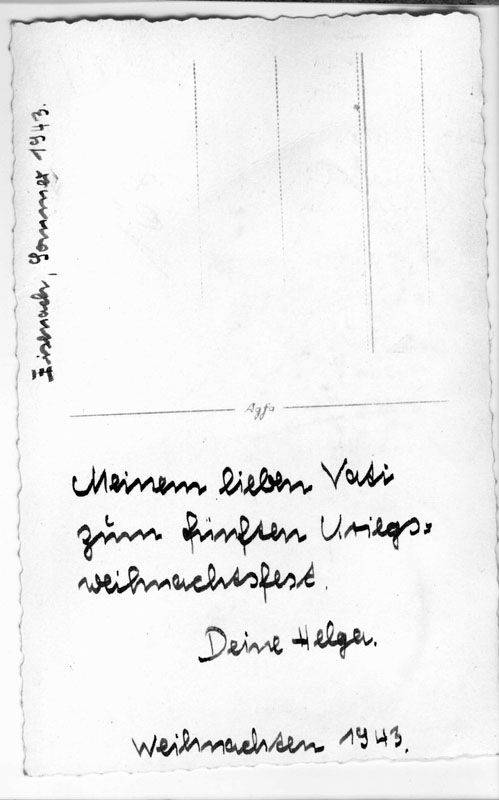 Eisenach, Sommer 1943.
Agfa
Meinem lieben Vati
zum fünften Kriegs=
weihnachtsfest.
Deine Helga.
Weihnachten 1943.